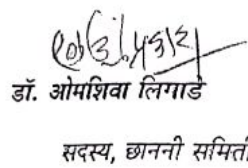 डॉ. ओमशिवा लिगाडे
सदस्य, छाननी समिती,